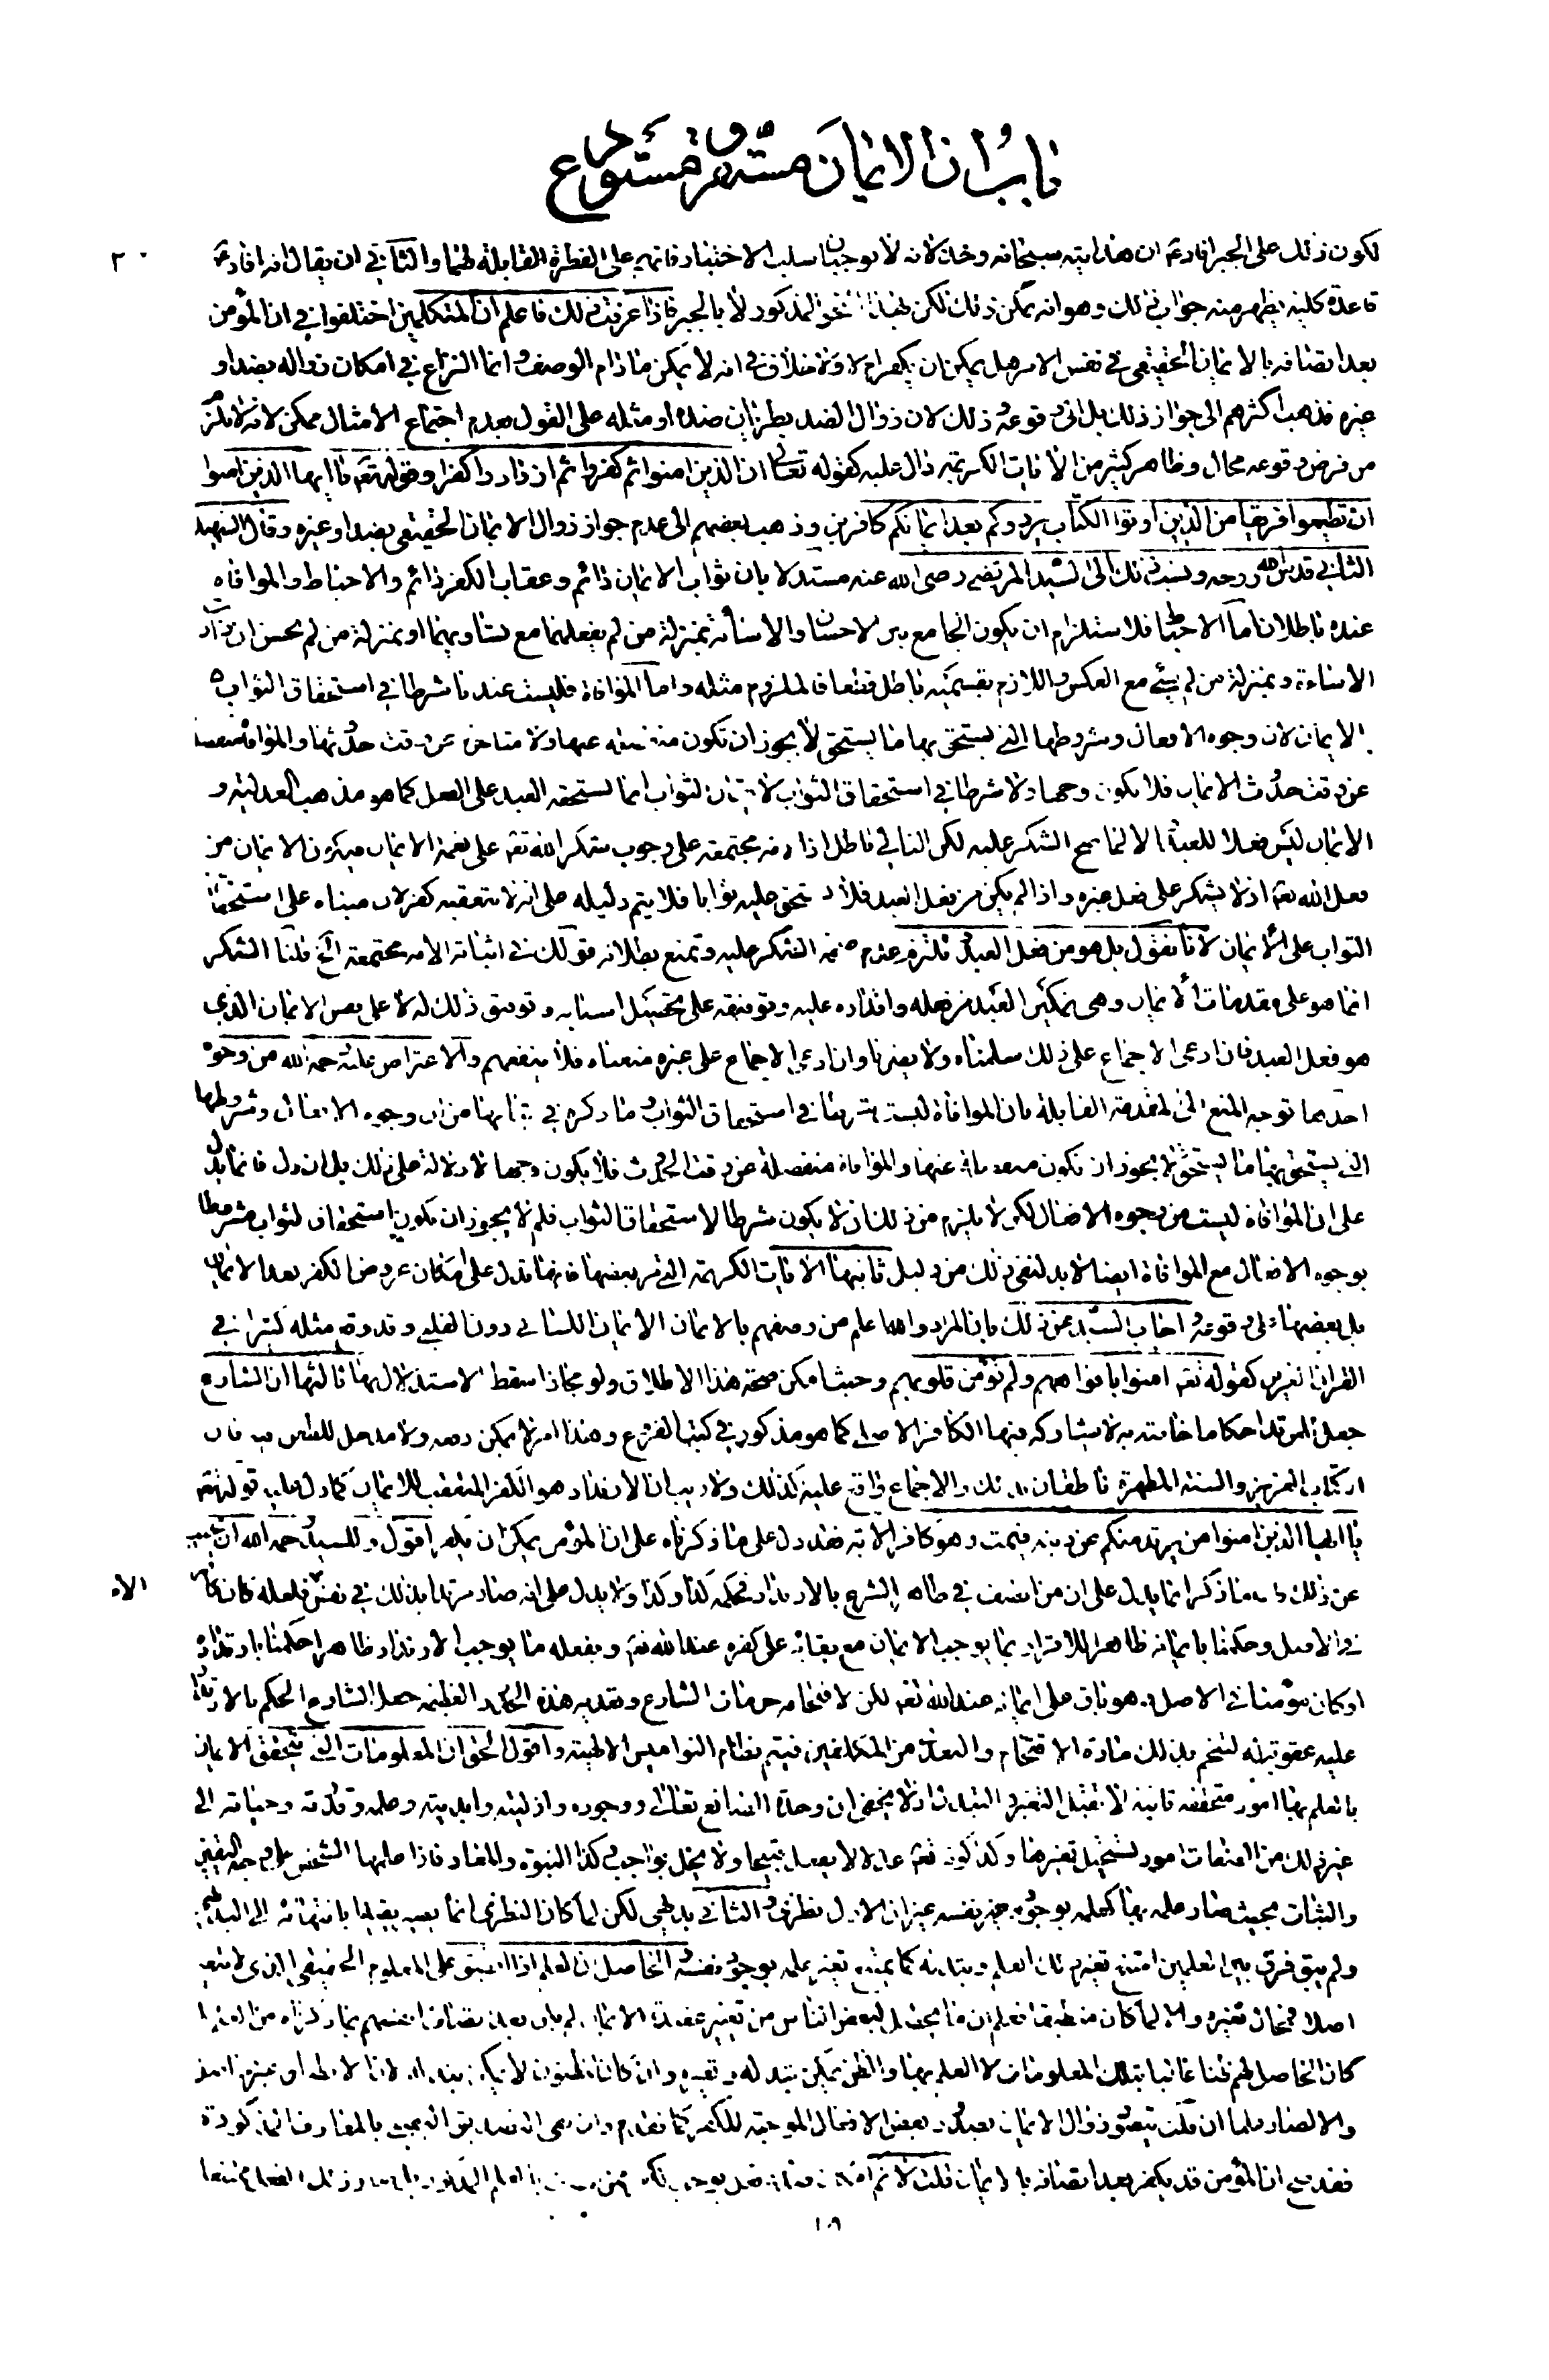 باب ان الايمان مستقر و مستودع
لكون ذلك على الجبر افاد عم ان هدايته سبحانه وخذلانه لا يوجبان سلب الاختيار فانهم على الفطرة القابلة لهما والثاني ان يقال انه افاد عم
قاعدة كلية يظهر منه جواب ذلك وهو انه يمكن ذلك لكن بهذا النحو المذكور لا بالجبر فاذا عرفت ذلك فاعلم ان المتكلمين اختلفوا في ان المؤمن
بعد اتصافه بالايمان الحقيقي في نفس الامر هل يمكن ان يكفر ام لا ولا خلاف في انه لا يمكن ما دام الوصف وانما النزاع في امكان زواله بضد او
غيره فذهب اكثرهم الى جواز ذلك بل الى وقوعه وذلك لان زوال الضد بطريان ضده او مثله على القول بعدم اجتماع الامثال ممكن لانه لا يلزم
من فرض وقوعه محال وظاهر كثير من الايات الكريمة دال عليه كقوله تعالى ان الذين امنوا ثم كفروا ثم ازدادوا كفرا وقوله تعه يا ايها الذين امنوا
ان تطيعوا فريقا من الذين اوتوا الكتاب يردوكم بعد ايمانكم كافرين وذهب بعضهم الى عدم جواز زوال الايمان الحقيقي بضد او غيره وقال الشهيد
الثاني قدس الله روحه ونسب ذلك الى السيد المرتضى رضي الله عنه مستدلا بان ثواب الايمان دائم وعقاب الكفر دائم والاحباط والموافاه
عنده باطلان اما الاحباط فلاستلزام ان يكون الجامع بين الاحسان والاسائة بمنزلة من لم يفعلهما مع تساويهما او بمنزلة من لم يحسن ان زادت
الاساءة وبمنزلة من لم يسئ مع العكس واللازم بقسميه باطل قطعا فالملزوم مثله واما الموافاة فليست عنده شرطا في استحقاق الثواب
بالايمان لان وجوه الافعال وشروطها التي يستحق بها ما يستحق لا يجوز ان تكون منفصلة عنها ولا متاخرة عن وقت حدوثها والموافاة منفصلة
عن وقت حدوث الايمان فلا يكون وجها ولا شرطا في استحقاق الثواب لا يقال الثواب انما يستحقه العبد على الفعل كما هو مذهب العدلية و
الايمان ليس فعلا للعبد والا لما صح الشكر عليه لكن التالي باطل اذ الامة مجتمعة على وجوب شكر الله تعه على نعمة الايمان فيكون الايمان من
فعل الله تعه اذ لا يشكر على فعل غيره واذا لم يكن من فعل العبد فلا يستحق عليه ثوابا فلا يتم دليله على انه لا يتعقبه كفر لان مبناه على استحقاق
الثواب على الايمان لانا نقول بل هو من فعل العبد ونلتزم عدم صحة الشكر عليه ونمنع بطلانه قولك في اثباته الامة مجتمعة الخ قلنا الشكر
انما هو على مقدمات الايمان وهي تمكين العبد من فعله واقداره عليه وتوفيقه على تحصيل اسبابه وتوفيق ذلك له لا على نفس الايمان الذي
هو فعل العبد فان ادعى الاجماع على ذلك سلمناه ولا يضرنا وان ادعى الاجماع على غيره منعناه فلا ينفعهم والاعتراض عليه رحمه الله من وجوه
احدهما توجه المنع الى المقدمة القائلة بان الموافاة ليست شرطا في استحقاق الثواب وما ذكره في اثباتها من ان وجوه الافعال وشروطها
التي يستحق بها ما يستحق لا يجوز ان تكون منفصلة عنها والموافاة منفصلة عن وقت الحدوث فلا يكون وجها لا دلالة على ذلك بل ان دل فانما يدل
على ان الموافاة ليست من وجوه الافعال لكن لا يلزم من ذلك ان لا يكون شرطا لاستحقاق الثواب فلم لا يجوز ان يكون استحقاق الثواب مشروطا
بوجوه الافعال مع الموافاة ايضا لا بد لنفي ذلك من دليل ثانيها الايات الكريمة التي مر بعضها فانها تدل على امكان عروض الكفر بعد الايمان
بل بعضها على وقوعه و اجاب السيد عن ذلك بان المراد والله اعلم من وصفهم بالايمان الايمان اللساني دون القلبي وقد وقع مثله كثيرا في
القران العزيز كقوله تعه امنوا بافواههم ولم تؤمن قلوبهم وحيث امكن صحة هذا الاطلاق ولو مجازا سقط الاستدلال بها ثالثها ان الشارع
جعل للمرتد احكاما خاصة به لا يشاركه فيها الكافر الاصلي كما هو مذكور في كتب الفروع وهذا امر لا يمكن دفعه ولا مدخل للطعن فيه فان
الكتاب العزيز والسنة المطهرة ناطقان بذلك والاجماع واقع عليه كذلك ولا ريب ان الارتداد هو الكفر المتعقب للايمان كما دل عليه قوله تعه
يا ايها الذين امنوا من يرتد منكم عن دينه فيمت وهو كافر الاية فقد دل على ما ذكرناه على ان المؤمن يمكن ان يكفر اقول وللسيد رحمه الله ان يجيب
عن ذلك بان ما ذكر انما يدل على ان من اتصف في ظاهر الشرع بالارتداد فحكمه كذا وكذا ولا يدل على انه صار مرتدا بذلك في نفس الامر فلعله كان كافرا
في الاصل وحكمنا بايمانه ظاهرا للاقرار بما يوجب الايمان مع بقائه على كفره عند الله تعه وبفعله ما يوجب الارتداد ظاهرا حكمنا بارتداده
او كان مؤمنا في الاصل وهو باق على ايمانه عند الله تعه لكن لاقتحامه حرمات الشارع وتعديه هذه الحدود العظيمة جعل الشارع الحكم بالارتداد
عليه عقوبة له لتنحسم بذلك مادة الاقتحام والتعدي من المكلفين فيتم نظام النواميس الالهية واقول الحق ان المعلومات التي يتحقق الايمان
بالعلم بها امور متحققة ثابتة لا تقبل التغير والتبدل اذ لا يخفى ان وحدة الصانع تعالى ووجوده وازليته وابديته وعلمه وقدرته وحياته الى
غير ذلك من الصفات امور تستحيل تغيرها وكذا كونه تعه عدلا لا يفعل قبيحا ولا يخل بواجب وكذا النبوة والمعاد فاذا علمها الشخص على وجه اليقين
والثبات بحيث صار علمه بها كعلمه بوجود نفسه غير ان الاول نظري و الثاني بديهي لكن لما كان النظري انما يصير يقينيا بانتهائه الى البديهي
ولم يبق فرق بين العلمين امتنع تغير ذلك العلم وتبدله كما يمتنع تغير علمه بوجود نفسه والحاصل ان العلم اذا انطبق على المعلوم الحقيقي الذي لا يتغير
اصلا فمحال تغيره والا لما كان منطبقا فعلم ان ما يحصل لبعض الناس من تغير عقيدة الايمان لم يكن بعد اتصاف انفسهم بما ذكرناه من العلم بل
كان الحاصل لهم ظنا غالبا بتلك المعلومات لا العلم بها والظن يمكن تبدله وتغيره وان كان المظنون لا يمكن تبدله
فان قلت يتصور زوال الايمان بعد صدور بعض الافعال الموجبة للكفر كما تقدم وان بقي التصديق اليقيني بالمعارف المذكورة
فقد صح ان المؤمن قد يكفر بعد اتصافه بالايمان قلت لا نسلم
١٠٩